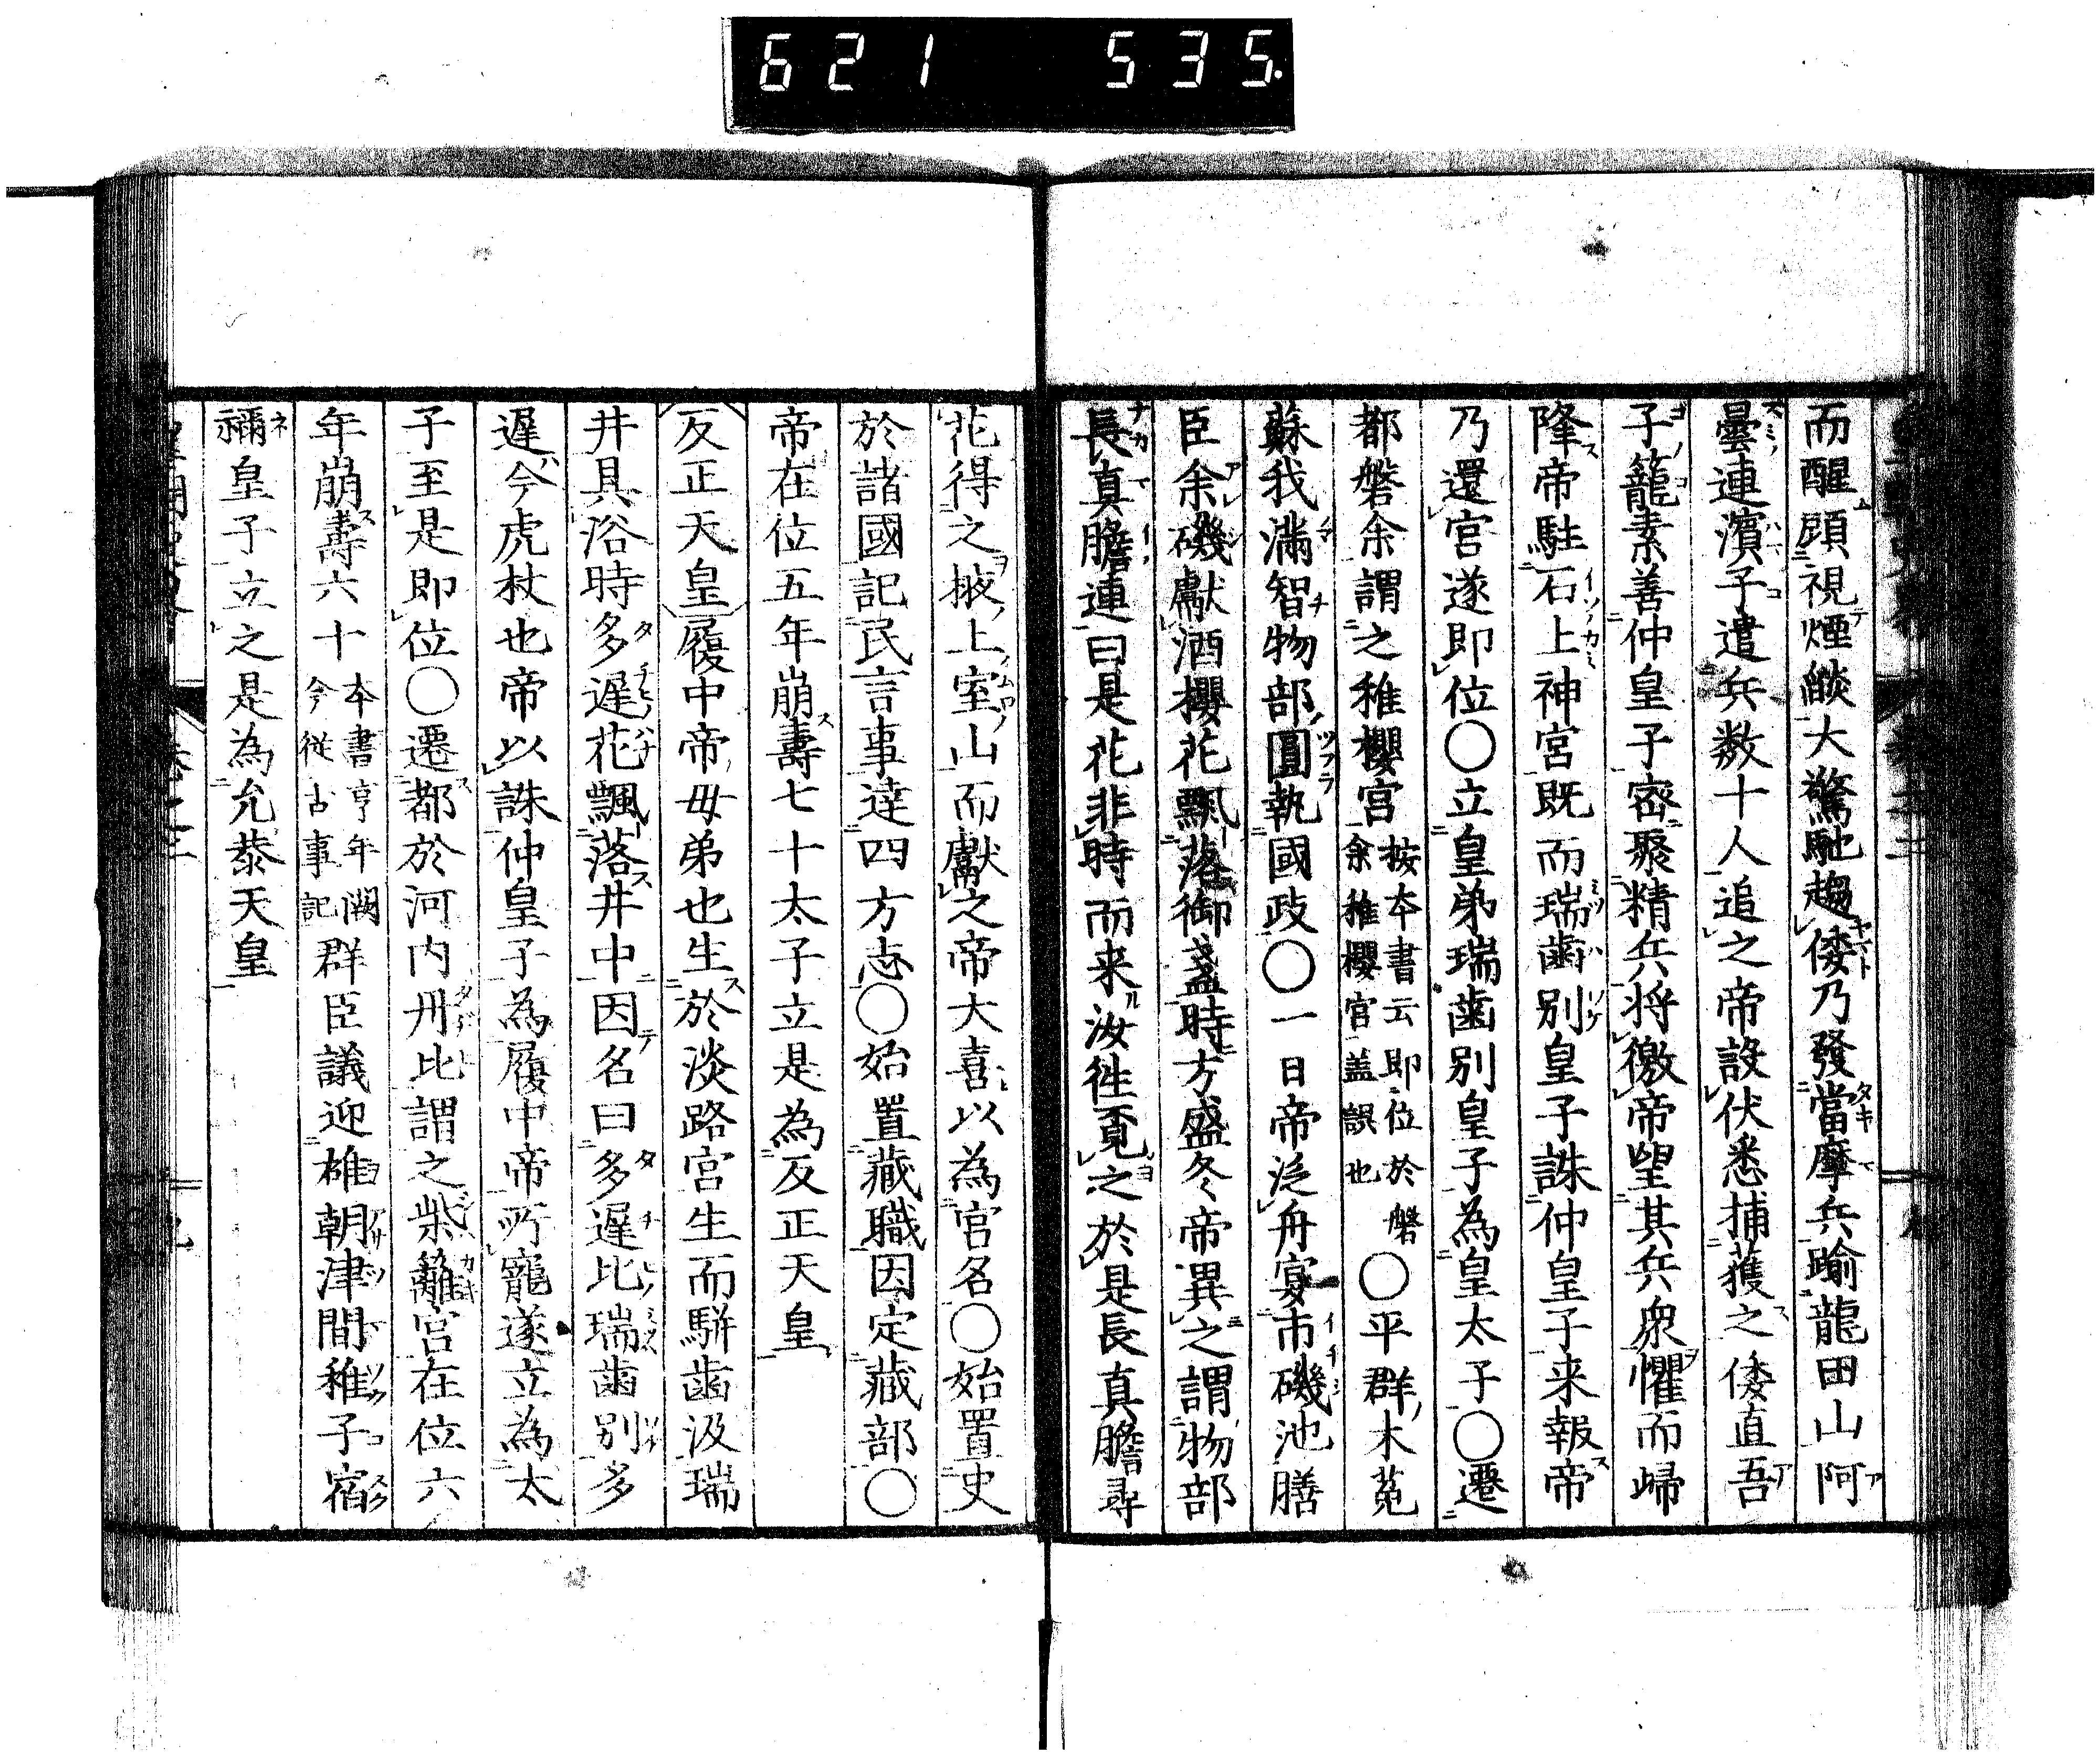 621 535.
而醒顧視煙燄大驚馳趨倭乃發當摩兵踰龍田山阿
曇連濱子遣兵数十人追之帝設伏悉捕獲之倭直吾
子籠素善仲皇子密聚精兵将徼帝望其兵衆懼而歸
降帝駐石上神宮既而瑞歯別皇子誅仲皇子来報帝
乃還宮遂即位〇立皇弟瑞歯別皇子為皇太子〇遷
都磐余謂之稚櫻宮按本書云即位於磐余稚櫻宮蓋誤也〇平群木菟
蘇我満智物部圓執國政〇一日帝泛舟宴市磯池膳
臣余磯獻酒櫻花飄落御盞時方盛冬帝異之謂物部
長真膽連曰是花非時而来汝徃覔之於是長真膽尋
花得之掖上室山而獻之帝大喜以為宮名〇始置史
於諸國記民言事達四方志〇始置藏職因定藏部〇
帝在位五年崩壽七十太子立是為反正天皇
反正天皇履中帝母弟也生於淡路宮生而駢歯汲瑞
井具浴時多遲花飄落井中因名曰多遲比瑞歯別多
遲今虎杖也帝以誅仲皇子為履中帝所寵遂立為太
子至是即位〇遷都於河内丹比謂之柴籬宮在位六
年崩壽六十本書享年闕今從古事記群臣議迎雄朝津間稚子宿
禰皇子立之是為允恭天皇